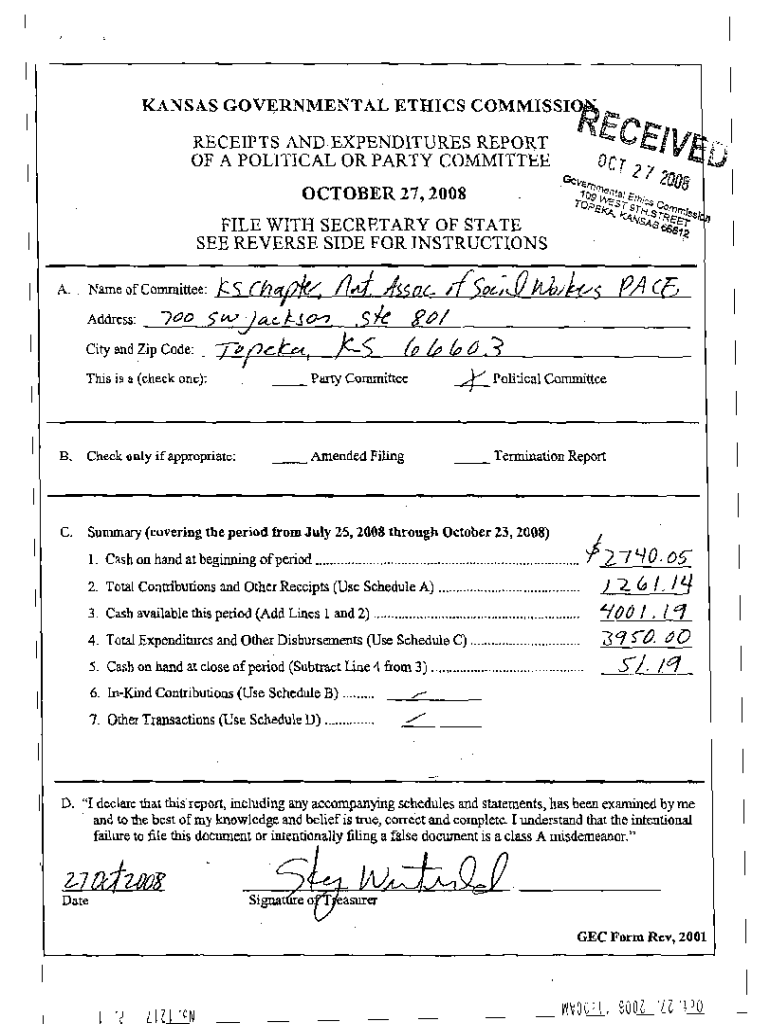 KANSAS GOVERNMENTAL ETHICS COMMISSION
RECEIPTS AND EXPENDITURES REPORT
OF A POLITICAL OR PARTY COMMITTEE
OCTOBER 27, 2008
FILE WITH SECRETARY OF STATE
SEE REVERSE SIDE FOR INSTRUCTIONS
RECEIVED
OCT 27 2008
Governmental Ethics Commission
109 WEST 9TH STREET
TOPEKA, KANSAS 66612
A. Name of Committee: KS Chapter, Nat Assoc of Social Workers PACE
Address: 700 SW Jackson Ste 801
City and Zip Code: Topeka, KS 66603
This is a (check one): ____ Party Committee X Political Committee
B. Check only if appropriate: ____ Amended Filing ____ Termination Report
C. Summary (covering the period from July 25, 2008 through October 23, 2008)
1. Cash on hand at beginning of period ........ $2740.05
2. Total Contributions and Other Receipts (Use Schedule A) ........ 1261.14
3. Cash available this period (Add Lines 1 and 2) ........ 4001.19
4. Total Expenditures and Other Disbursements (Use Schedule C) ........ 3950.00
5. Cash on hand at close of period (Subtract Line 4 from 3) ........ 51.19
6. In-Kind Contributions (Use Schedule B) ......... –
7. Other Transactions (Use Schedule D) .............. –
D. "I declare that this report, including any accompanying schedules and statements, has been examined by me
and to the best of my knowledge and belief is true, correct and complete. I understand that the intentional
failure to file this document or intentionally filing a false document is a class A misdemeanor."
27 Oct 2008
Date Signature of Treasurer
GEC Form Rev, 2001
No. 1217 P. 1 Oct. 27. 2008